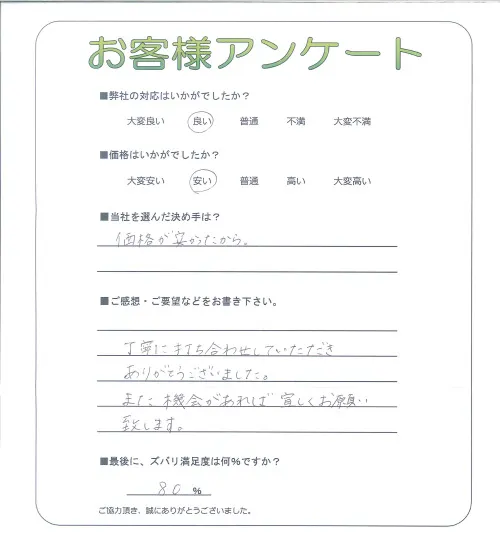 お客様アンケート
■弊社の対応はいかがでしたか？
大変良い 良い 普通 不満 大変不満
■価格はいかがでしたか？
大変安い 安い 普通 高い 大変高い
■当社を選んだ決め手は？
価格が安かったから。
■ご感想・ご要望などをお書き下さい。
丁寧に打ち合わせしていただき
ありがとうございました。
また機会があれば宜しくお願い
致します。
■最後に、ズバリ満足度は何％ですか？
80 %
ご協力頂き、誠にありがとうございました。